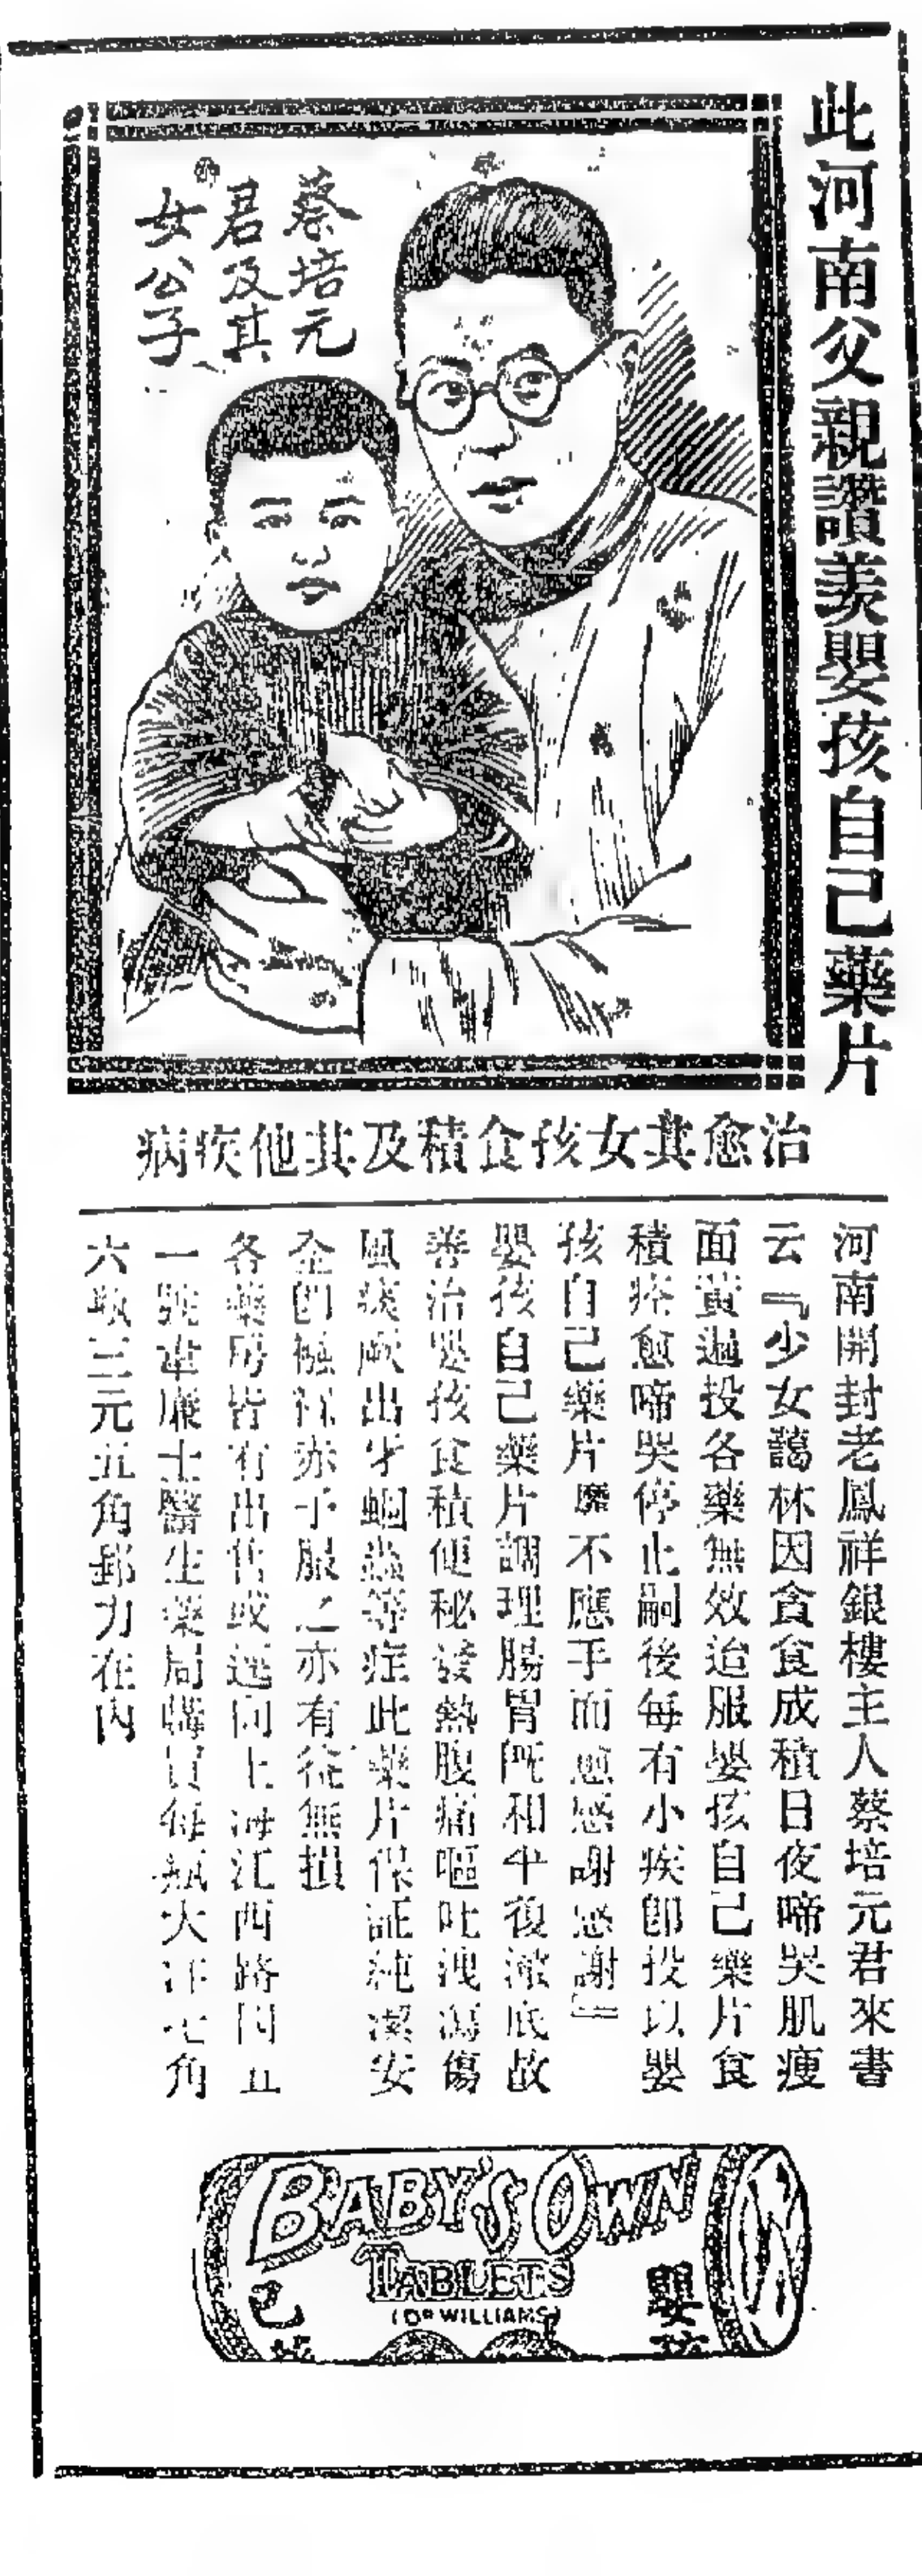 此河南父親讚美嬰孩自己藥片
蔡培元
君及其
女公子
治愈其女孩食積及其他疾病
河南開封老鳳祥銀樓主人蔡培元君來書
云『少女藹林因食食成積日夜啼哭肌瘦
面黃遍投各藥無效迨服嬰孩自己藥片食
積痊愈啼哭停止嗣後每有小疾卽投以嬰
孩自己藥片靡不應手而愈感謝感謝』
嬰孩自己藥片調理腸胃旣和平復澈底故
善治嬰孩食積便秘發熱腹痛嘔吐洩瀉傷
風痰厥出牙蛔蟲等症此藥片保証純潔安
全卽襁褓赤子服之亦有益無損
各藥房皆有出售或逕向上海江西路四五
一號韋廉士醫生藥局購買每瓶大洋七角
六瓶三元五角郵力在內
BABY'S OWN
TABLETS
(DR WILLIAMS)
嬰孩
自己